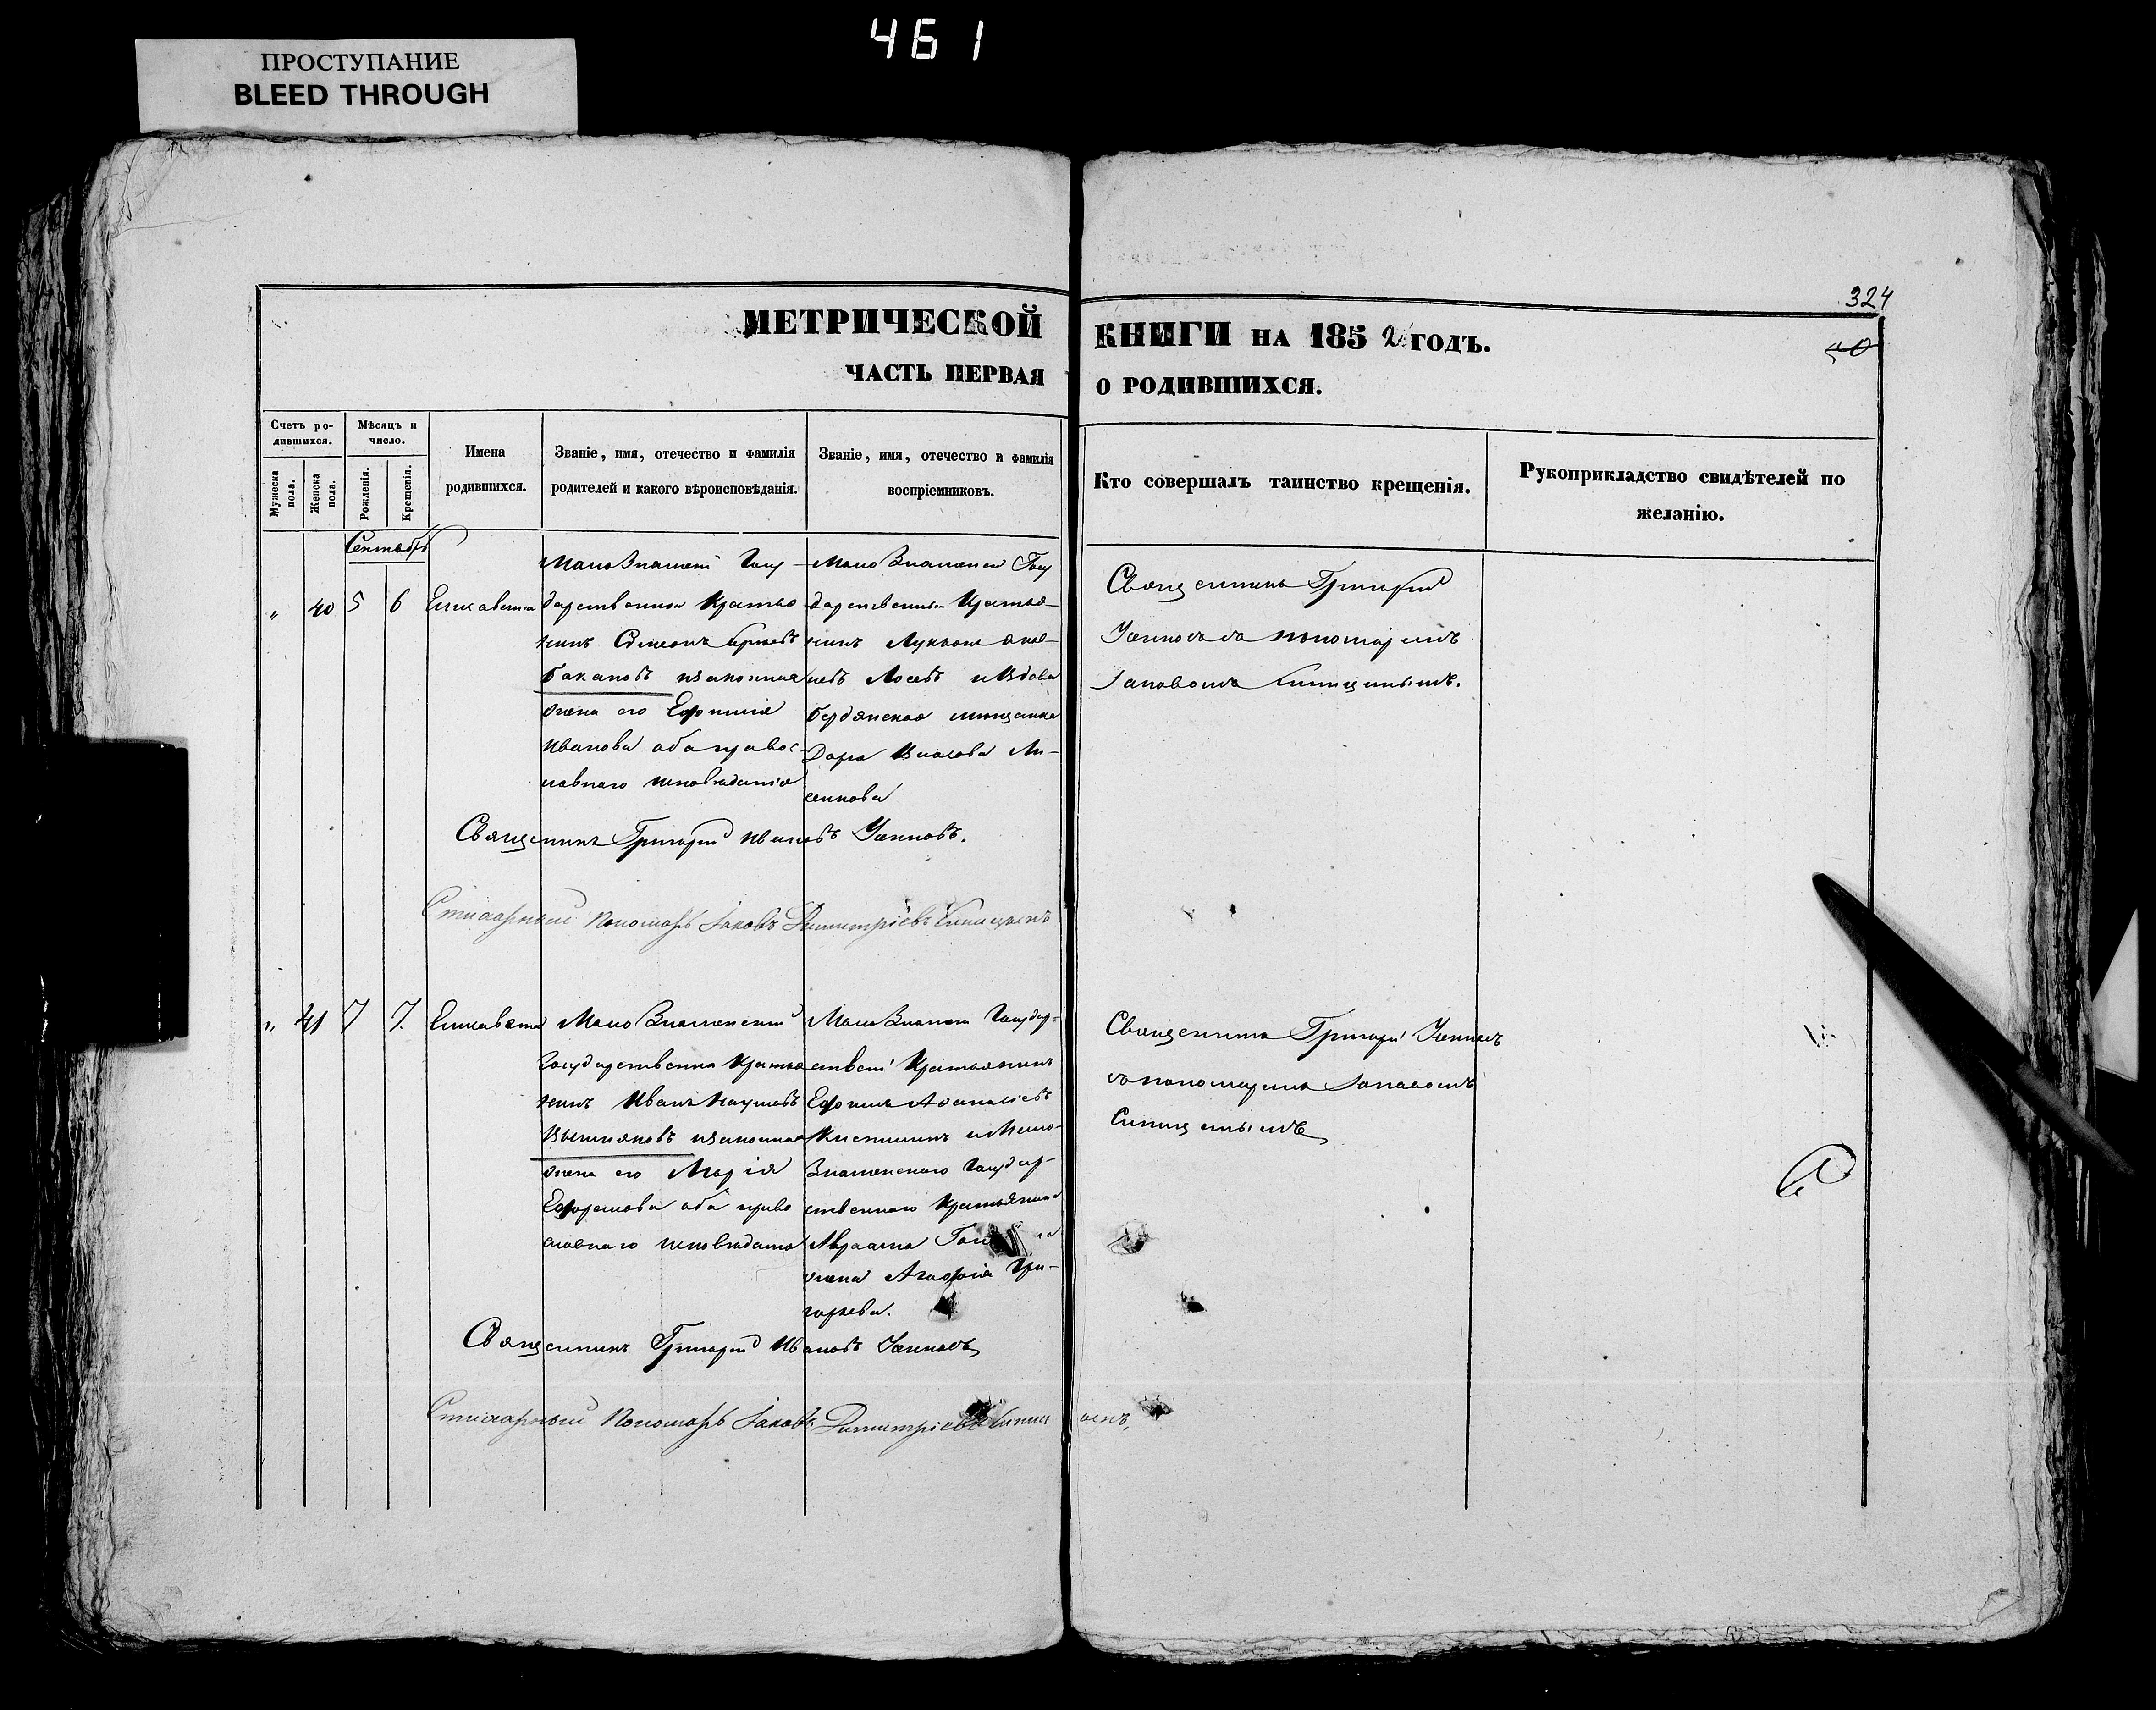 461
ПРОСТУПАНИЕ
BLEED THROUGH
324
МЕТРИЧЕСКОЙ КНИГИ НА 1852 ГОДЪ.
50
ЧАСТЬ ПЕРВАЯ О РОДИВШИХСЯ.
Счетъ ро-
дившихся.
Мужеска пола.
Женска пола.
Мѣсяцъ и
число.
Рожденія.
Крещенія.
Имена
родившихся.
Званіе, имя, отечество и фамилія
родителей и какого вѣроисповѣданія.
Званіе, имя, отечество и фамилія
воспріемниковъ.
Кто совершалъ таинство крещенія.
Рукоприкладство свидѣтелей по
желанію.
Сентябрь
„ 40 5 6 Елисавета
Мало Знамені Госу-
дарственна Крестья
нинъ Сѵмеонъ
Бакановъ изаконная
жена его Ефимія
Иванова оба правос-
лавнаго исповѣданія
Мало Знаменен Госу
дарственны Крестья-
нинъ Лукьянъ
Лосевъ ивдова
Бердянская мещанка
Дарья Власова Ли-
сенкова
Священникъ Григорій
съ пономаремъ
Іаковомъ Синицынымъ.
Священникъ Григорій Ивановъ
Стихарный Пономарь Іаковъ Димитріевъ Синицынъ
„ 41 7 7. Елисавета
Мало Знаменскій
Государственна Крестья
нинъ Иванъ Наумовъ
Вишняковъ изаконная
жена его Марія
Ефремова оба право
славнаго исповѣданія
Мало Знамен Государ-
ствені Крестьянинъ
Ефимъ Аѳанасіевъ
иМало-
Знаменскаго Государ-
ственнаго Крестьянина
Авраама
жена Агафія Гри-
горьева.
Священникъ Григорій
съ пономаремъ Іаковомъ
Синицынымъ
Священникъ Григорій Ивановъ
Стихарный Пономарь Іаковъ Димитріевъ Синицынъ